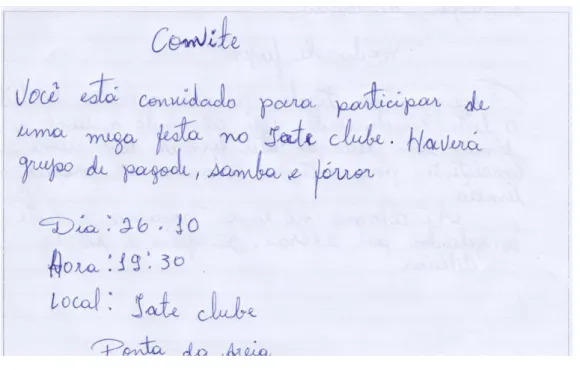 Convite
Você está convidado para participar de
uma mega festa no Iate clube. Haverá
grupo de pagode, samba e fórror
Dia: 26.10
Hora: 19:30
Local: Iate clube
Ponta da areia